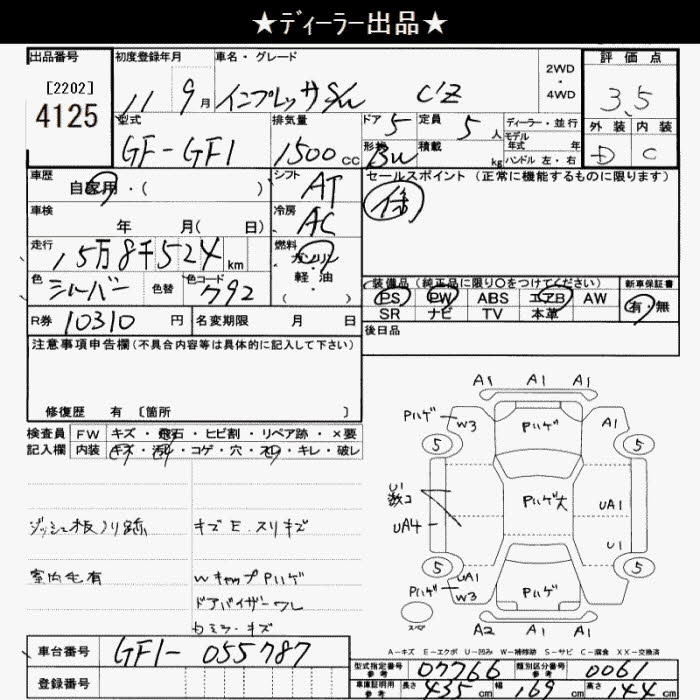 ★ディーラー出品★
出品番号 初度登録年月 車名・グレード 2WD・4WD 評価点
[2202]
4125
11 9月 インプレッサS/W C'Z 3.5
型式 排気量 ドア 5 定員 5人 ディーラー・並行 外装 内装
GF-GF1 1500cc 形状 積載 kg モデル年式 年 ハンドル 左・右 D C
車歴 自家用・( ) シフト AT セールスポイント (正常に機能するものに限ります)
車検 年 月( 日) 冷房 AC
走行 15万8千524km 燃料 ガソリン・軽・油( )
色 シルバー 色替 色コード 792
装備品(純正品に限り○をつけてください) 新車保証書
PS PW ABS エアB AW 有・無
SR ナビ TV 本革
R券 10310円 名変期限 月 日
後日品
注意事項申告欄(不具合内容等は具体的に記入して下さい)
修復歴 有 [箇所 ]
検査員 FW キズ・飛石・ヒビ割・リペア跡・×要
記入欄 内装 キズ・汚れ・コゲ・穴・スレ・キレ・破レ
A1 A1 A1
Pハゲ W3 Pハゲ A1
5 5
U1 数コ Pハゲ大 UA1
UA4 U1
5 5
Pハゲ UA1 W3 Pハゲ
A2 A1 A1
スペア
ダッシュ板ノリ跡 キズE.スリキズ
室内毛有 WキャップPハゲ
ドアバイザーワレ
カミラ・キズ
A-キズ E-エクボ U-凹み W-補修跡 S-サビ C-腐食 XX-交換済
車台番号 GF1-055787
登録番号
型式指定番号 参考 07766 類別区分番号 参考 0061
車庫証明用 参考 長さ 435cm 幅 169cm 高さ 144cm